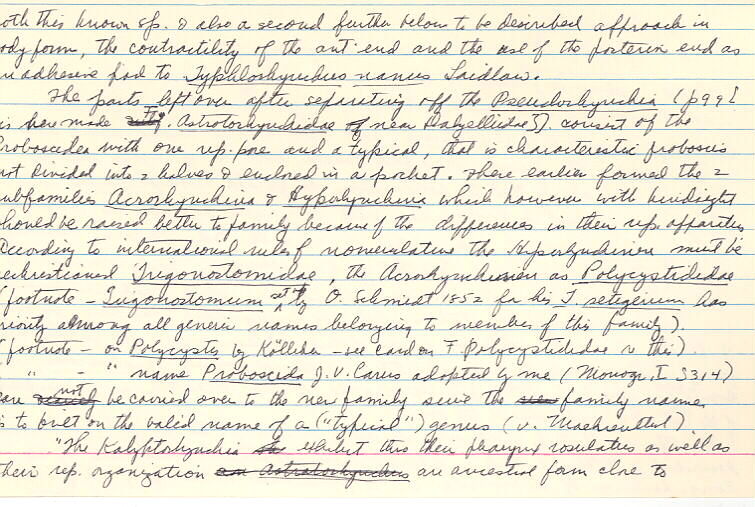 oth this known sp. & also a second further below to be described approach in
ody form, the contractility of the ant. end and the use of the posterior end as
n adhesive pad to Typhlorhynchus nanus Laidlaw.
The parts left over after separating off the Pseudorhynchia (p 99 [
is here made F. Astrotorhynchidae near Dalyelliidae]). consist of the
Proboscidea with one rep. pore and a typical, that is characteristic proboscis
not divided into 2 halves & enclosed in a pocket. There earlier formed the 2
ubfamilies Acrorhynchina & Hyporhynchina which however with hindsight
should be raised better to family because of the differences in their rep. apparatus
According to international rules of nomenclature the Hyporhynchinen must be
rechristianed Trigonostomidae, the Acrorhynchinen as Polycystididae
(footnote - Trigonostomum set up by O. Schmidt 1852 for his T. setigerum has
riority among all generic names belonging to member of this family).
(footnote - on Polycystis by Kölliker - see card on F. Polycystididae re this).
" - " name Proboscida J.V. Carus adopted by me (Monogr. I S314)
are not be carried over to the new family since the family name
is to built on the valid name of a ("typical") genus (v. Maehrenthal)
"The Kalyptorhynchia exhibit thru their pharynx rosulatus as well as
their rep. organization an ancestral form close to